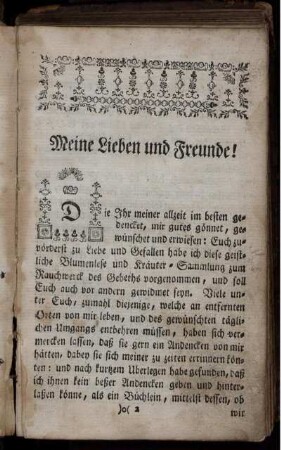 Meine Lieben und Freunde!
Die Ihr meiner allzeit im besten ge-
dencket, mir gutes gönnet, ge-
wünschet und erwiesen: Euch zu-
vörderst zu Liebe und Gefallen habe ich diese geist-
liche Blumenlese und Kräuter-Sammlung zum
Rauchwerck des Gebeths vorgenommen, und soll
Euch auch vor andern gewidmet seyn. Viele un-
ter Euch, zumahl diejenige, welche an entfernten
Orten von mir leben, und des gewünschten tägli-
chen Umgangs entbehren müssen, haben sich ver-
mercken lassen, daß sie gern ein Andencken von mir
hätten, dabey sie sich meiner zu zeiten erinnern kön-
ten: und nach kurtzem Uberlegen habe gefunden, daß
ich ihnen kein beßer Andencken geben und hinter-
laßen könne, als ein Büchlein, mittelst dessen, ob
)o( 2 wir